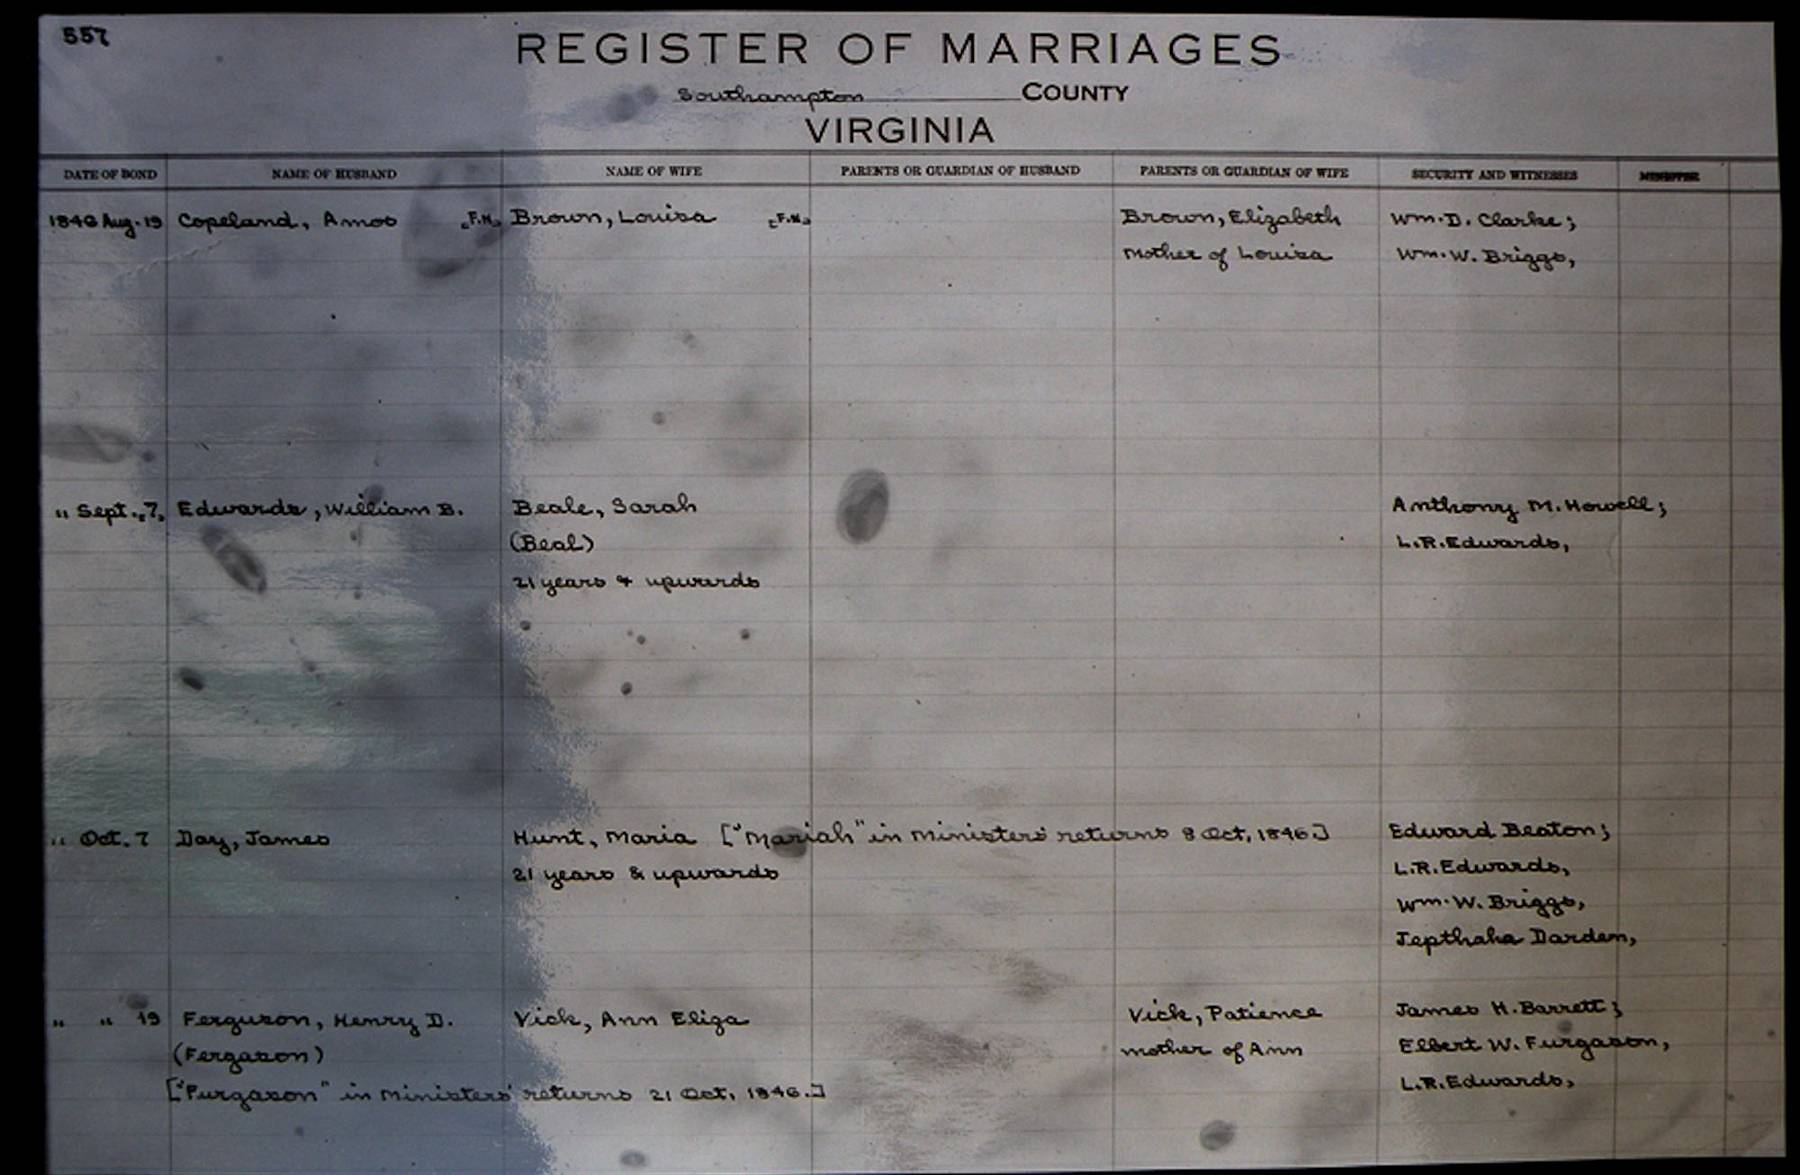 557
REGISTER OF MARRIAGES
Southampton COUNTY
VIRGINIA
DATE OF BOND NAME OF HUSBAND NAME OF WIFE PARENTS OR GUARDIAN OF HUSBAND PARENTS OR GUARDIAN OF WIFE SECURITY AND WITNESSES MINISTER
1846 Aug. 19 Copeland, Amos [F.N.] Brown, Louisa [F.N.] Brown, Elizabeth Wm. D. Clarke;
mother of Louisa Wm. W. Briggs,
" Sept. 7, Edwards, William B. Beale, Sarah Anthony M. Howell;
(Beal) L.R. Edwards,
21 years & upwards
" Oct. 7 Day, James Hunt, Maria ["Mariah" in Ministers' returns 8 Oct, 1846.] Edward Beaton;
21 years & upwards L.R. Edwards,
Wm. W. Briggs,
Jepthaha Darden,
" " 19 Ferguson, Henry D. Vick, Ann Eliza Vick, Patience James H. Barrett;
(Fergason) mother of Ann Elbert W. Furgason,
["Furgason" in Ministers' returns 21 Oct, 1846.] L.R. Edwards,